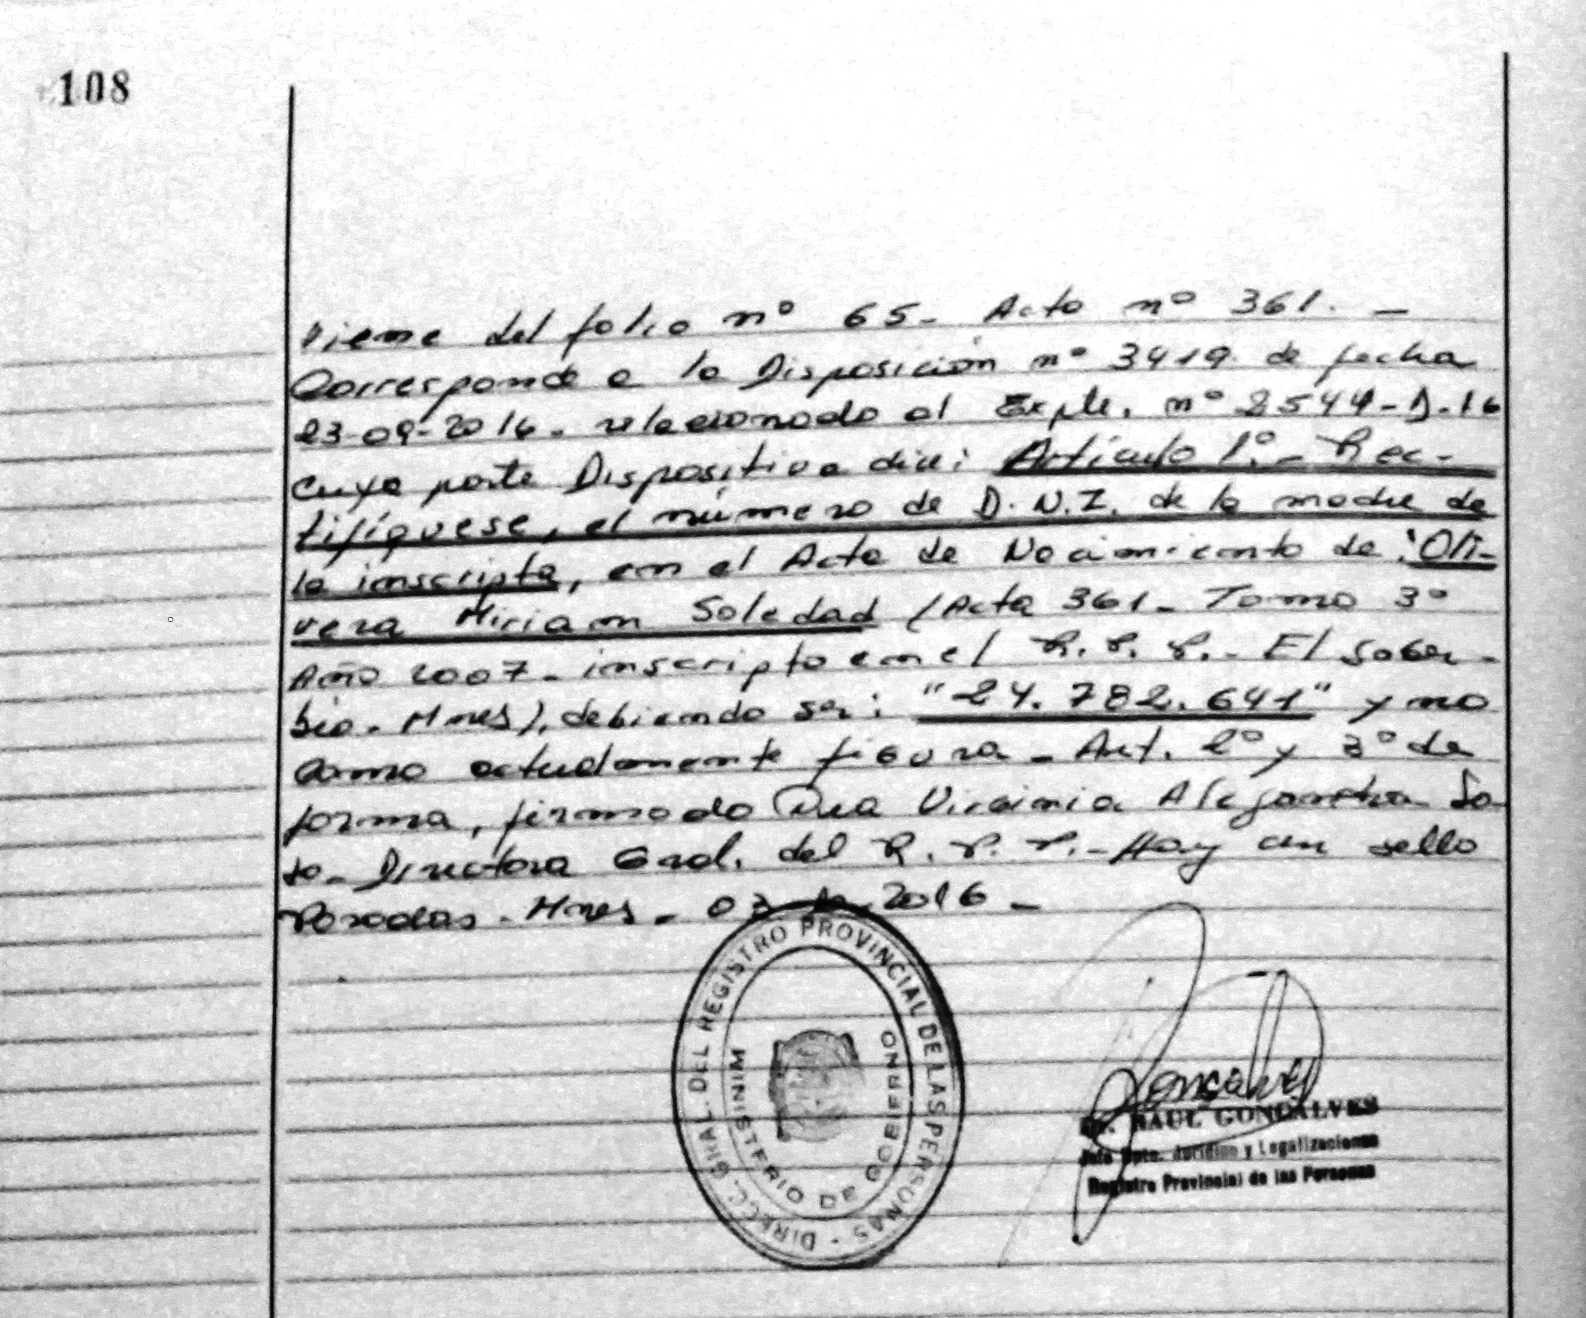 108
Viene del folio nº 65- Acta nº 361. -
Corresponde a la Disposición nº 3419. de fecha
23-09-2016- relacionado al Expte. nº 2544-D-16
cuya parte Dispositiva dice: Artículo 1º.- Rec-
tifíquese, el número de D.N.I. de la madre de
la inscripta, en el Acta de Nacimiento de: "Oli-
vera Miriam Soledad (Acta 361- Tomo 3º
Año 2007- inscripta en el R.P.P.- El Sober-
bio. Mnes), debiendo ser: "24.782.641" y no
como actualmente figura- Art. 2º y 3º de
forma, firmado Dra Virginia Alejandra So-
to- Directora Gral. del R.P.P.- Hay un sello
Posadas- Mnes- 03 2016-
DIRECC. GRAL. DEL REGISTRO PROVINCIAL DE LAS PERSONAS -
MINISTERIO DE GOBIERNO
Goncalves
Dr. RAUL GONCALVES
Jefe Dpto. Jurídico y Legalizaciones
Registro Provincial de las Personas